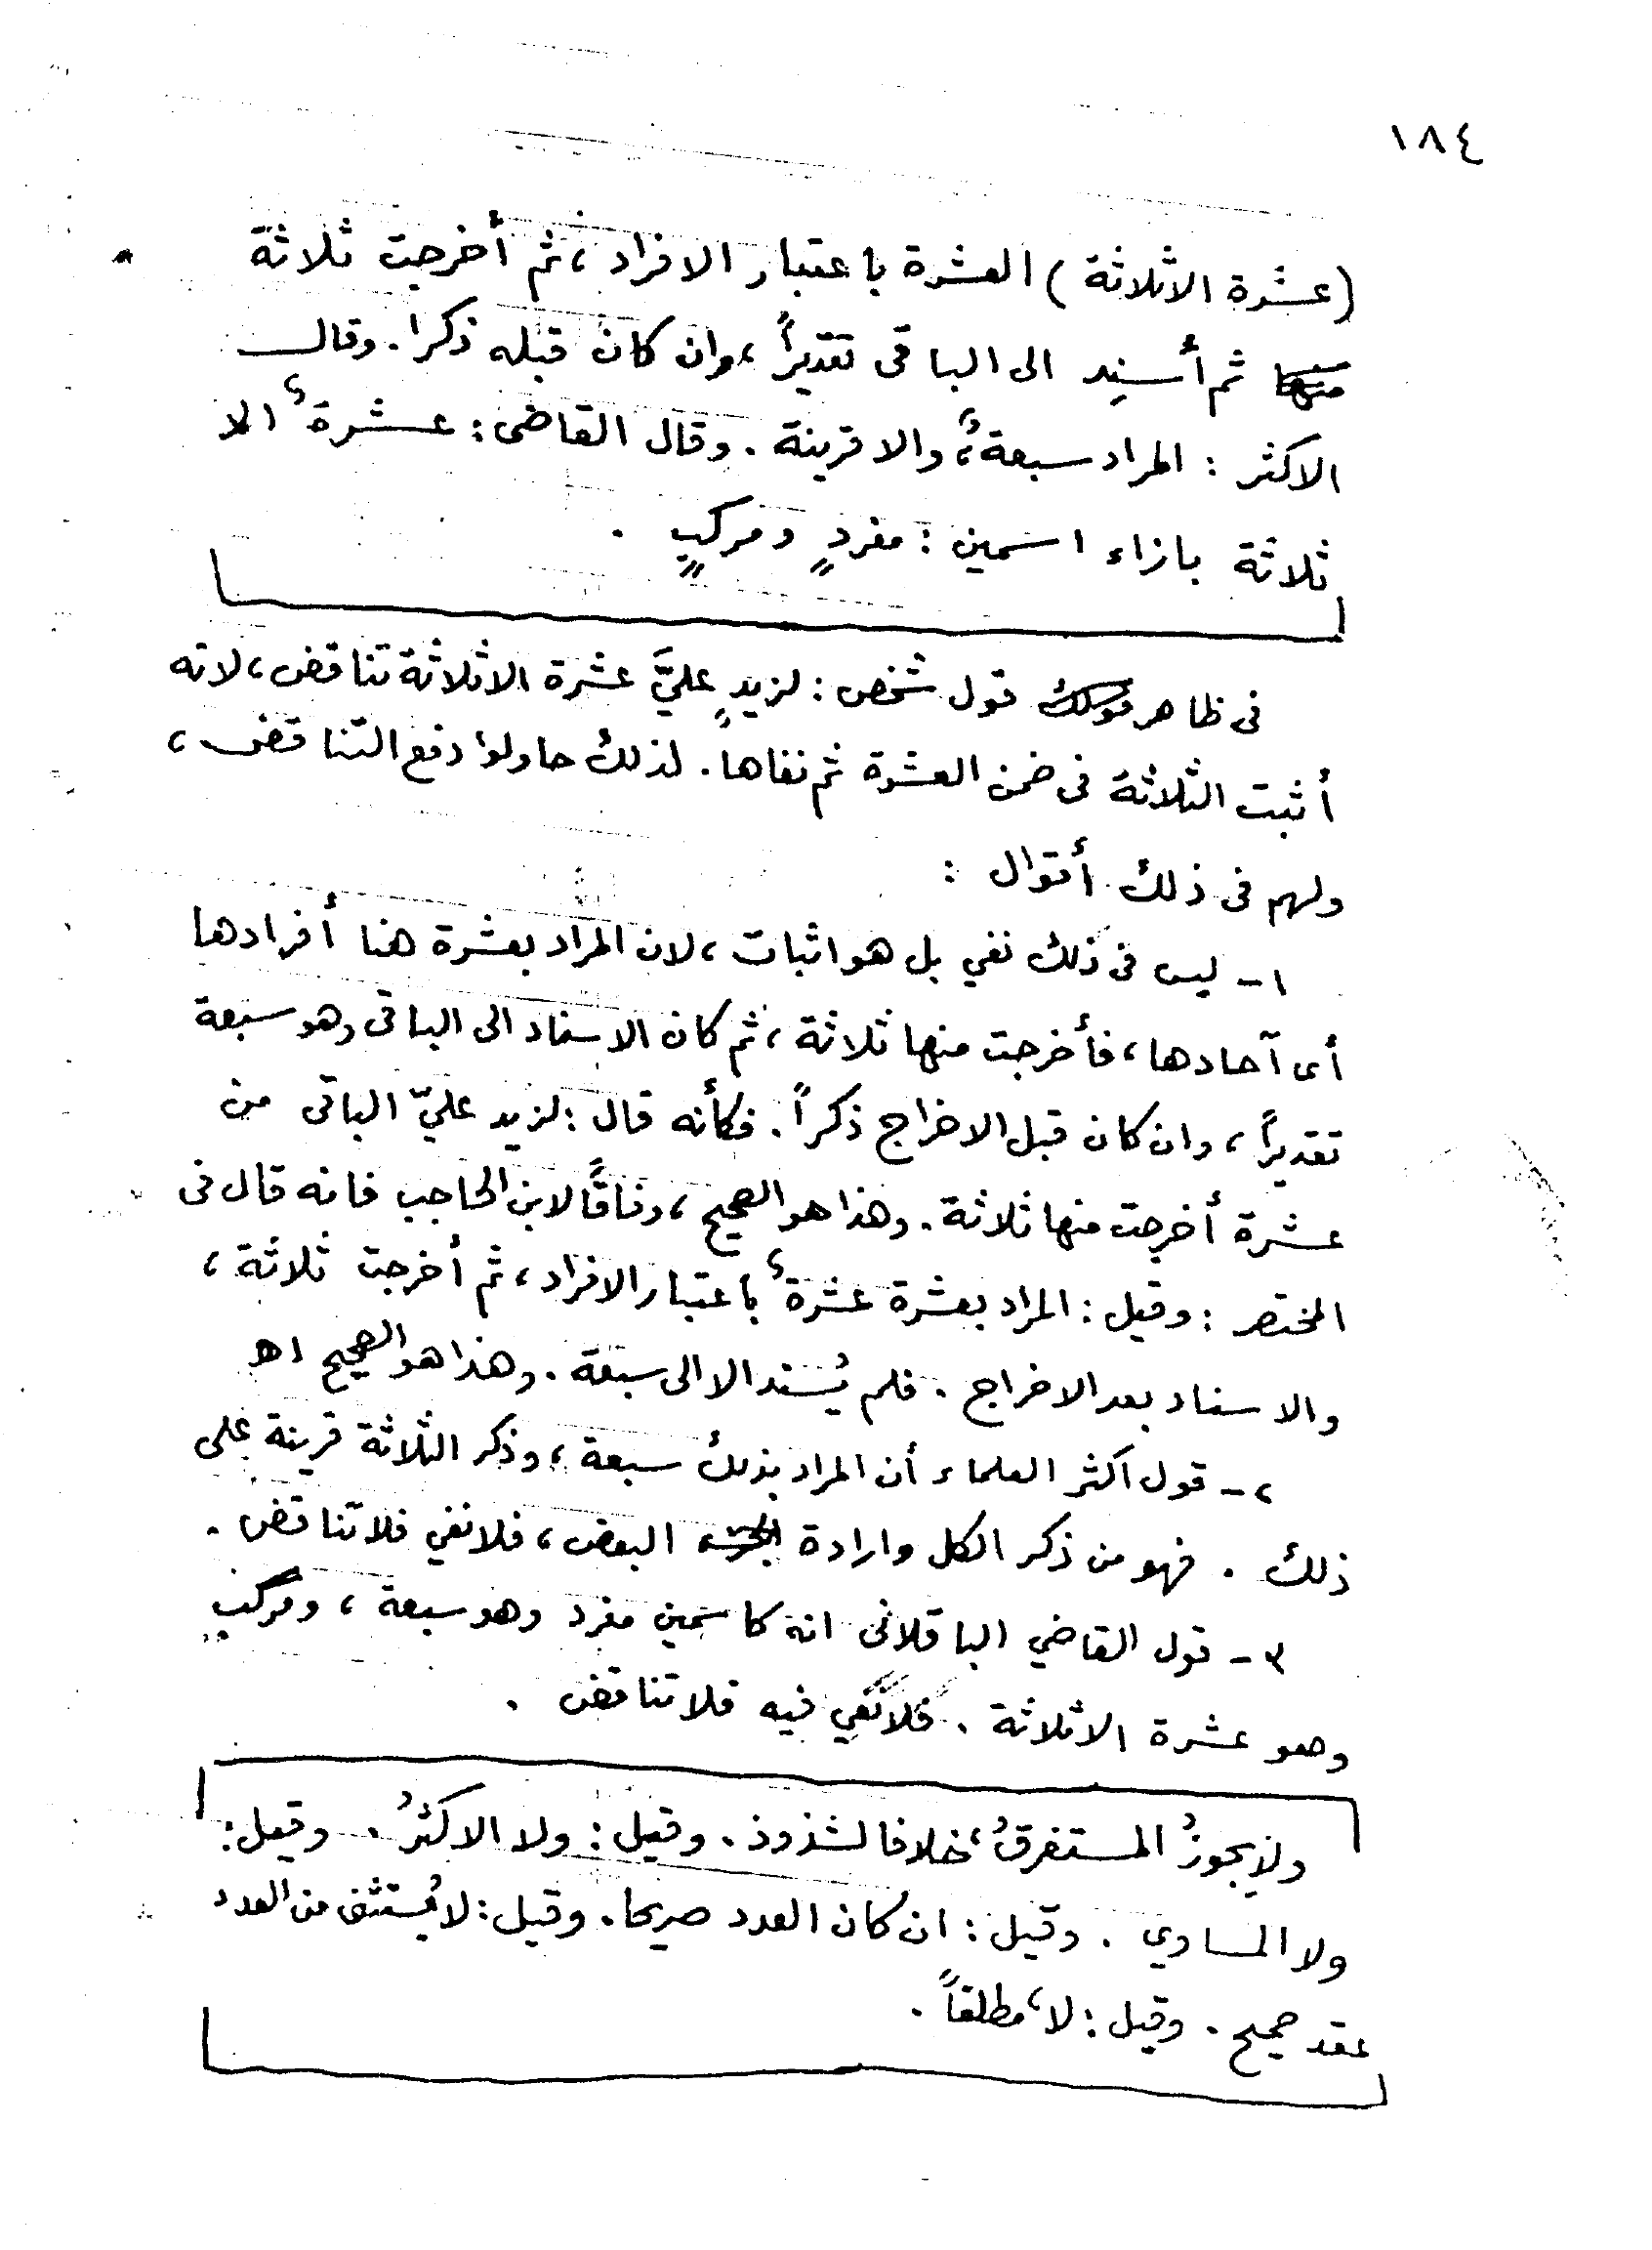 ١٨٤
(عشرة الا ثلاثة) العشرة باعتبار الافراد، ثم أخرجت ثلاثة
ثم أسند الى الباقى تقديراً، وان كان قبله ذكرا. وقال
الاكثر: المراد سبعةٌ، والا قرينة. وقال القاضى: عشرةٌ الا
ثلاثة بازاء اسمين: مفردٍ ومركبٍ.
فى ظاهر قول شخص: لزيدٍ عليَّ عشرة الا ثلاثة تناقض، لانه
أثبت الثلاثة فى ضمن العشرة ثم نفاها. لذلك حاولوا دفع التناقض،
ولهم فى ذلك أقوال:
١- ليس فى ذلك نفي بل هو اثبات، لان المراد بعشرة هنا أفرادها
أى آحادها، فأخرجت منها ثلاثة، ثم كان الاسناد الى الباقى وهو سبعة
تقديراً، وان كان قبل الاخراج ذكراً. فكأنه قال: لزيد عليّ الباقى من
عشرة أخرجت منها ثلاثة. وهذا هو الصحيح، وفاقًا لابن الحاجب فانه قال فى
المختصر: وقيل: المراد بعشرة عشرةٌ باعتبار الافراد، ثم أخرجت ثلاثة،
والاسناد بعد الاخراج. فلم يُسند الا الى سبعة. وهذا هو الصحيح اه
٢- قول اكثر العلماء أن المراد بذلك سبعة، وذكر الثلاثة قرينة على
ذلك. فهو من ذكر الكل وارادة البعض، فلا نفي فلا تناقض.
٣- قول القاضي الباقلانى انه كاسمين مفرد وهو سبعة، ومركب
وهو عشرة الا ثلاثة. فلا نفي فيه فلا تناقض.
ولا يجوزُ المستغرقُ، خلافا لشذوذ. وقيل: ولا الاكثرُ. وقيل:
ولا المساوي. وقيل: ان كان العدد صريحا. وقيل: لا يُستثنى من العدد
عقد صحيح. وقيل: لا، مطلقاً.